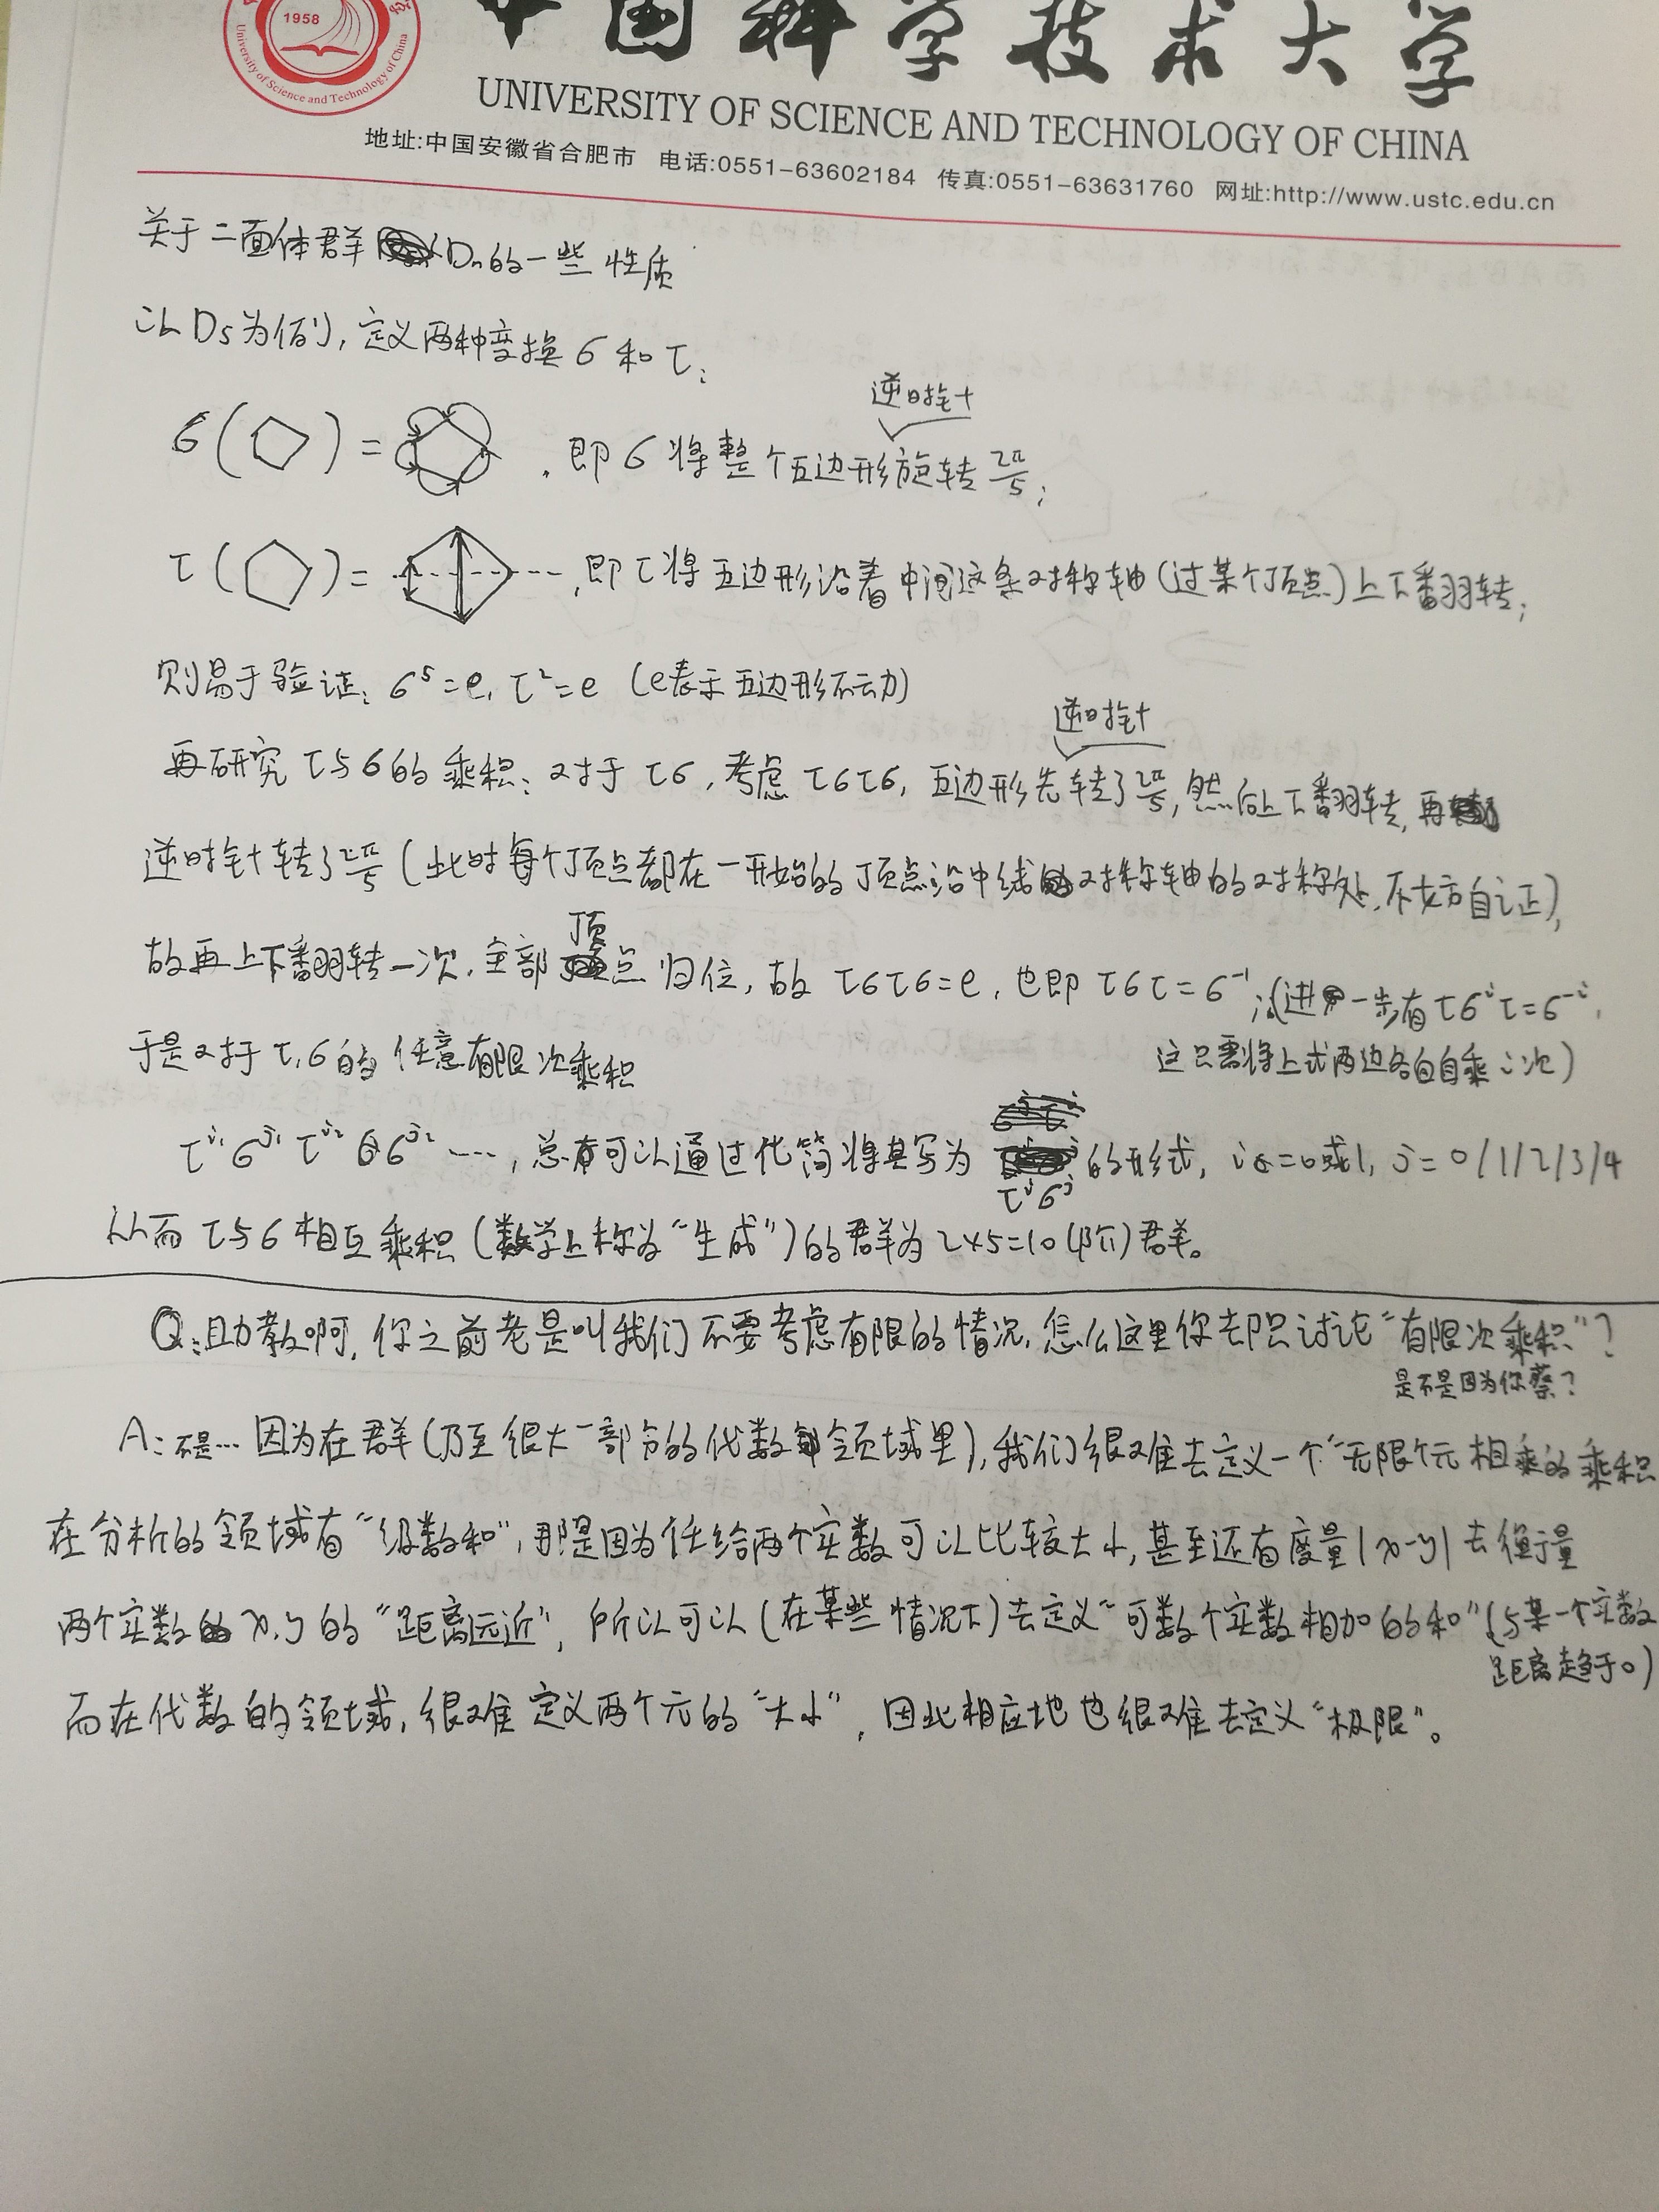 1958
University of Science and Technology of China
中国科学技术大学
UNIVERSITY OF SCIENCE AND TECHNOLOGY OF CHINA
地址:中国安徽省合肥市 电话:0551-63602184 传真:0551-63631760 网址:http://www.ustc.edu.cn
关于二面体群 Dn的一些性质
以D5为例,定义两种变换 σ 和 τ:
逆时针
σ( )= ,即 σ 将整个五边形旋转 2π/5;
τ( )= ,即 τ 将五边形沿着中间这条对称轴(过某个顶点)上下翻转;
则易于验证:σ^5=e, τ^2=e (e表示五边形不动)
逆时针
再研究 τ与σ的乘积:对于 τσ,考虑 τστσ,五边形先转了2π/5,然后上下翻转,再
逆时针转了2π/5(此时每个顶点都在一开始的顶点沿中线对称轴的对称处,不妨自证),
顶
故再上下翻转一次,全部点归位,故 τστσ=e,也即 τστ=σ^-1;(进一步有τσ^iτ=σ^-i,
于是对于 τ,σ的任意有限次乘积
这只需将上式两边各自自乘i次)
τ^i1 σ^j1 τ^i2 σ^j2 ……,总可以通过化简将其写为 τ^iσ^j 的形式,i=0或1,j=0/1/2/3/4
从而 τ与σ相互乘积(数学上称为“生成”)的群为2×5=10(阶)群。
Q:助教啊,你之前老是叫我们不要考虑有限的情况,怎么这里你去却只讨论“有限次乘积”?
是不是因为你蔡?
A:不是…因为在群(乃至很大一部分的代数领域里),我们很难去定义一个“无限个元相乘的乘积
在分析的领域有“级数和”,那是因为任给两个实数可以比较大小,甚至还有度量|x-y|去衡量
两个实数x,y的“距离远近”,所以可以(在某些情况下)去定义“可数个实数相加的和”(与某一个实数
距离趋于0)
而在代数的领域,很难定义两个元的“大小”,因此相应地也很难去定义“极限”。